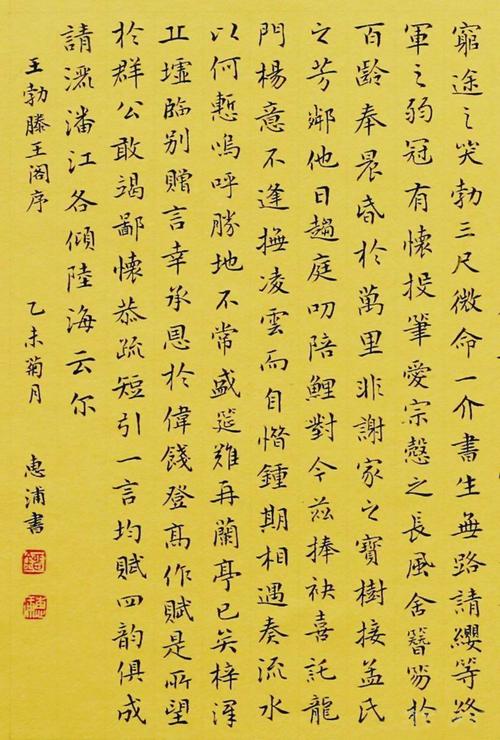 窮途之哭勃三尺微命一介書生無路請纓等終
軍之弱冠有懷投筆愛宗慤之長風舍簪笏於
百齡奉晨昏於萬里非謝家之寶樹接孟氏
之芳鄰他日趨庭叨陪鯉對今兹捧袂喜託龍
門楊意不逢撫凌雲而自惜鍾期相遇奏流水
以何慙嗚呼勝地不常盛筵難再蘭亭已矣梓澤
丘墟臨別贈言幸承恩於偉餞登高作賦是所望
於群公敢竭鄙懷恭疏短引一言均賦四韵俱成
請灑潘江各傾陸海云尔
王勃滕王閣序 乙未菊月 惠浦書